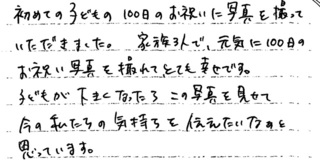 初めての子どもの100日のお祝いに写真を撮って
いただきました。 家族3人で、元気に100日の
お祝い写真を撮れてとても幸せです。
子どもが大きくなったら この写真を見せて
今の私たちの気持ちを伝えたいなぁと
思っています。